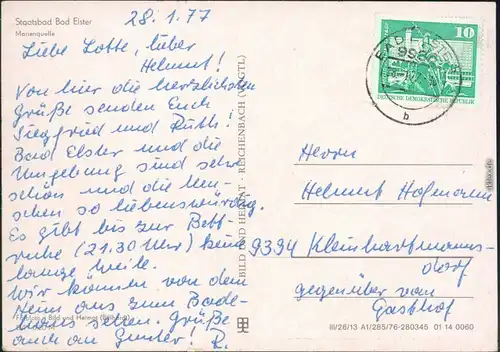 28.1.77
Staatsbad Bad Elster
Marienquelle
Liebe Lotte, lieber
Helmut!
Von hier die herzlichsten
Grüße senden Euch
Siegfried und Ruth!
Bad Elster und die
Umgebung sind sehr
schön und die Men-
schen so liebenswürdig.
Es gibt bis zur Bett-
ruhe (21.30 Uhr) keine
lange weile.
Wir können von dem
Heim aus zum Bade-
haus sehen. Grüße
auch an Gunter! R.
BILD UND HEIMAT · REICHENBACH (VOGTL)
10
DEUTSCHE DEMOKRATISCHE REPUBLIK
b
Herrn
Helmut Hofmann
9394 Kleinhartmanns-
dorf
gegenüber vom
Gasthof
III/26/13 A1/285/76-280345 01 14 0060